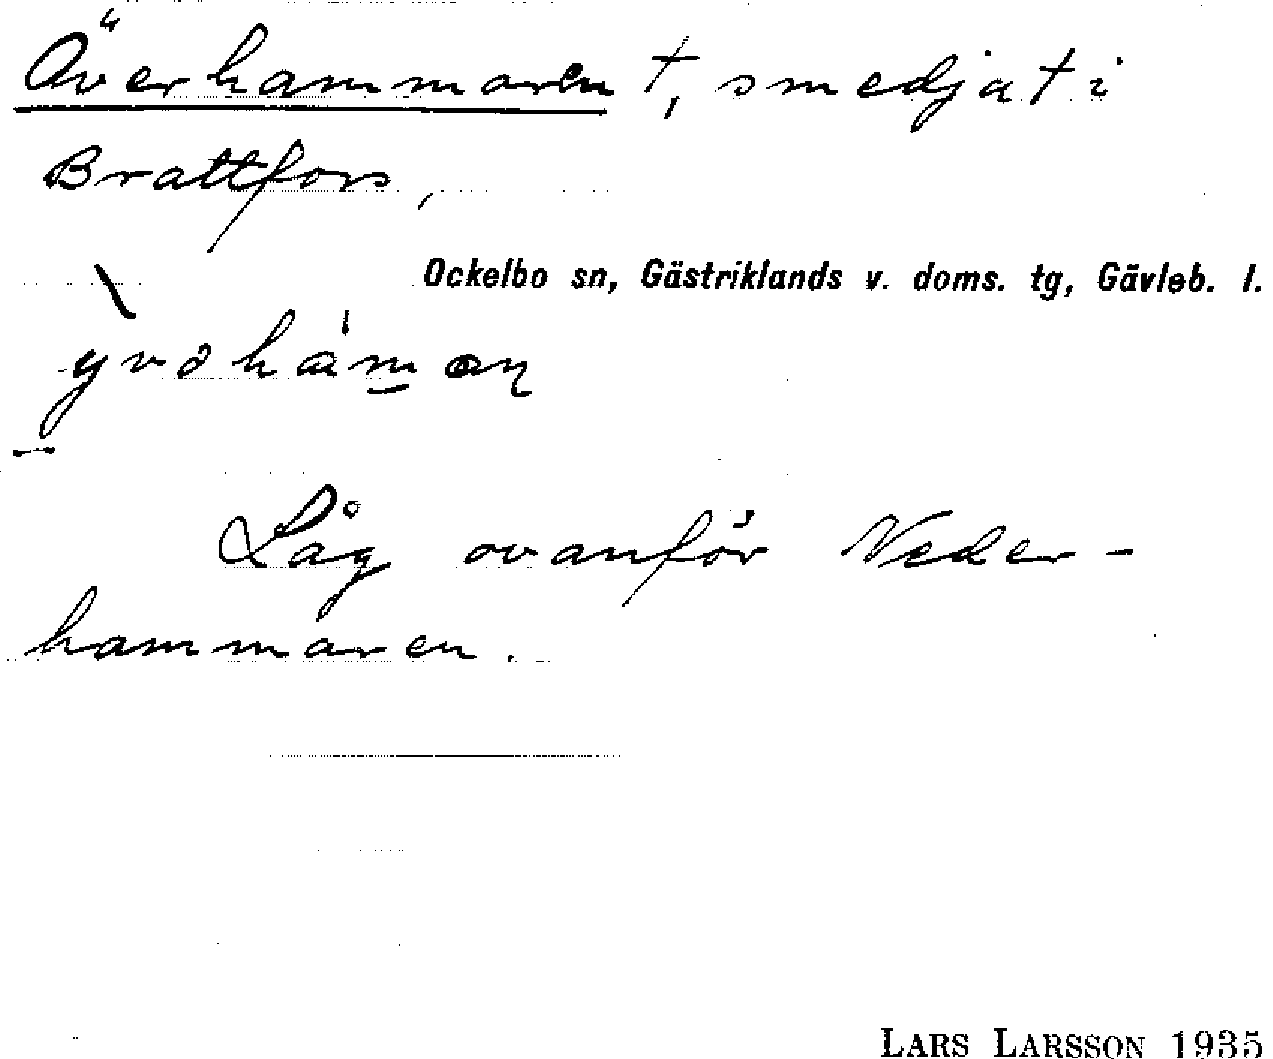 Överhammaren †, smedja † i
Brattfors,
Ockelbo sn, Gästriklands v. doms. tg, Gävleb. l.
Låg ovanför Neder-
hammaren.
LARS LARSSON 1935